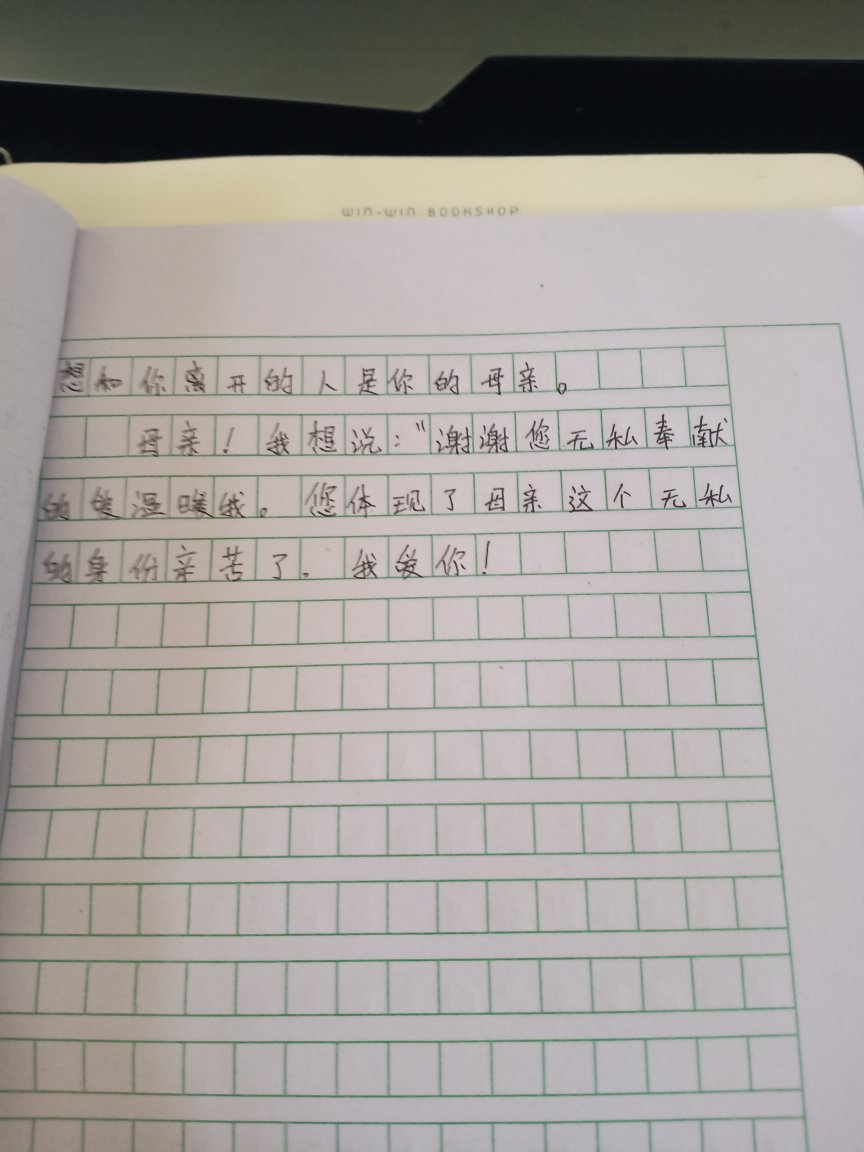 WIN-WIN BOOKSHOP
想和你离开的人是你的母亲。
母亲！我想说：“谢谢您无私奉献
的爱温暖我。您体现了母亲这个无私
的身份辛苦了.我爱你！